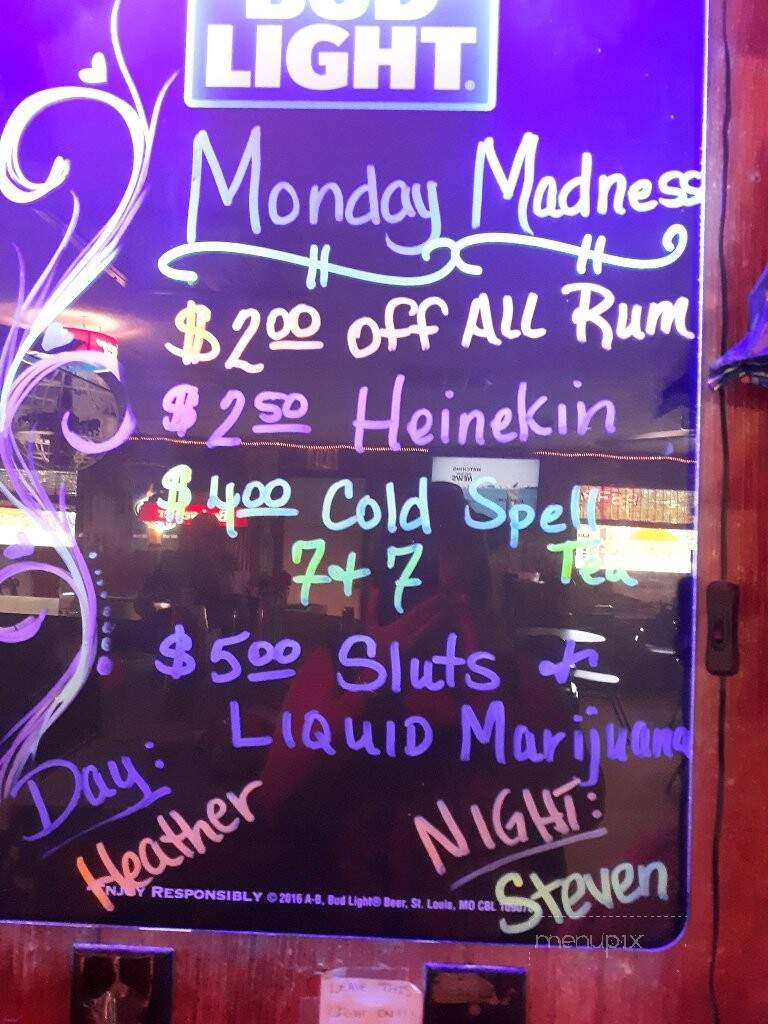 BUD
LIGHT
Monday Madness
$2.00 off ALL Rum
$2.50 Heinekin
$4.00 Cold Spell
7+7 Tea
$5.00 Sluts &
LIQUID Marijuana
Day:
Heather
NIGHT:
Steven
ENJOY RESPONSIBLY © 2016 A-B, Bud Light® Beer, St. Louis, MO CBL
menupix
LEAVE THIS
LIGHT ON!!!